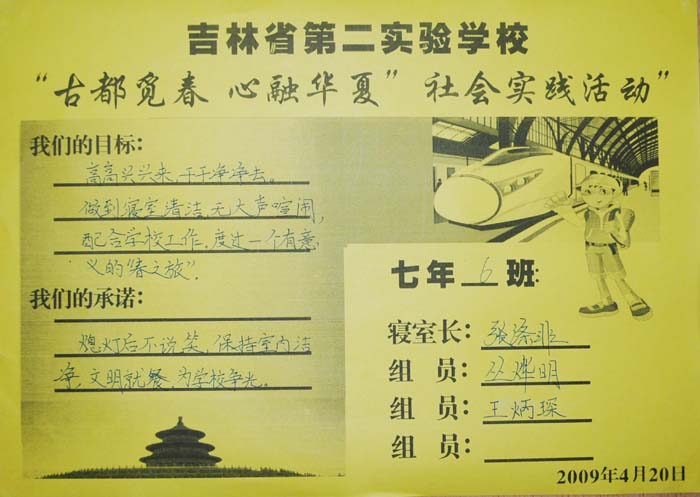 吉林省第二实验学校
“古都觅春 心融华夏”社会实践活动”
我们的目标：
高高兴兴来,干干净净去。
做到寝室清洁,无大声喧闹,
配合学校工作,度过一个有意
义的“春之旅”.
我们的承诺：
熄灯后不说笑,保持室内洁
净,文明就餐,为学校争光。
七年6班:
寝室长：张涤非
组 员：丛烨明
组 员：王炳琛
组 员：
2009年4月20日